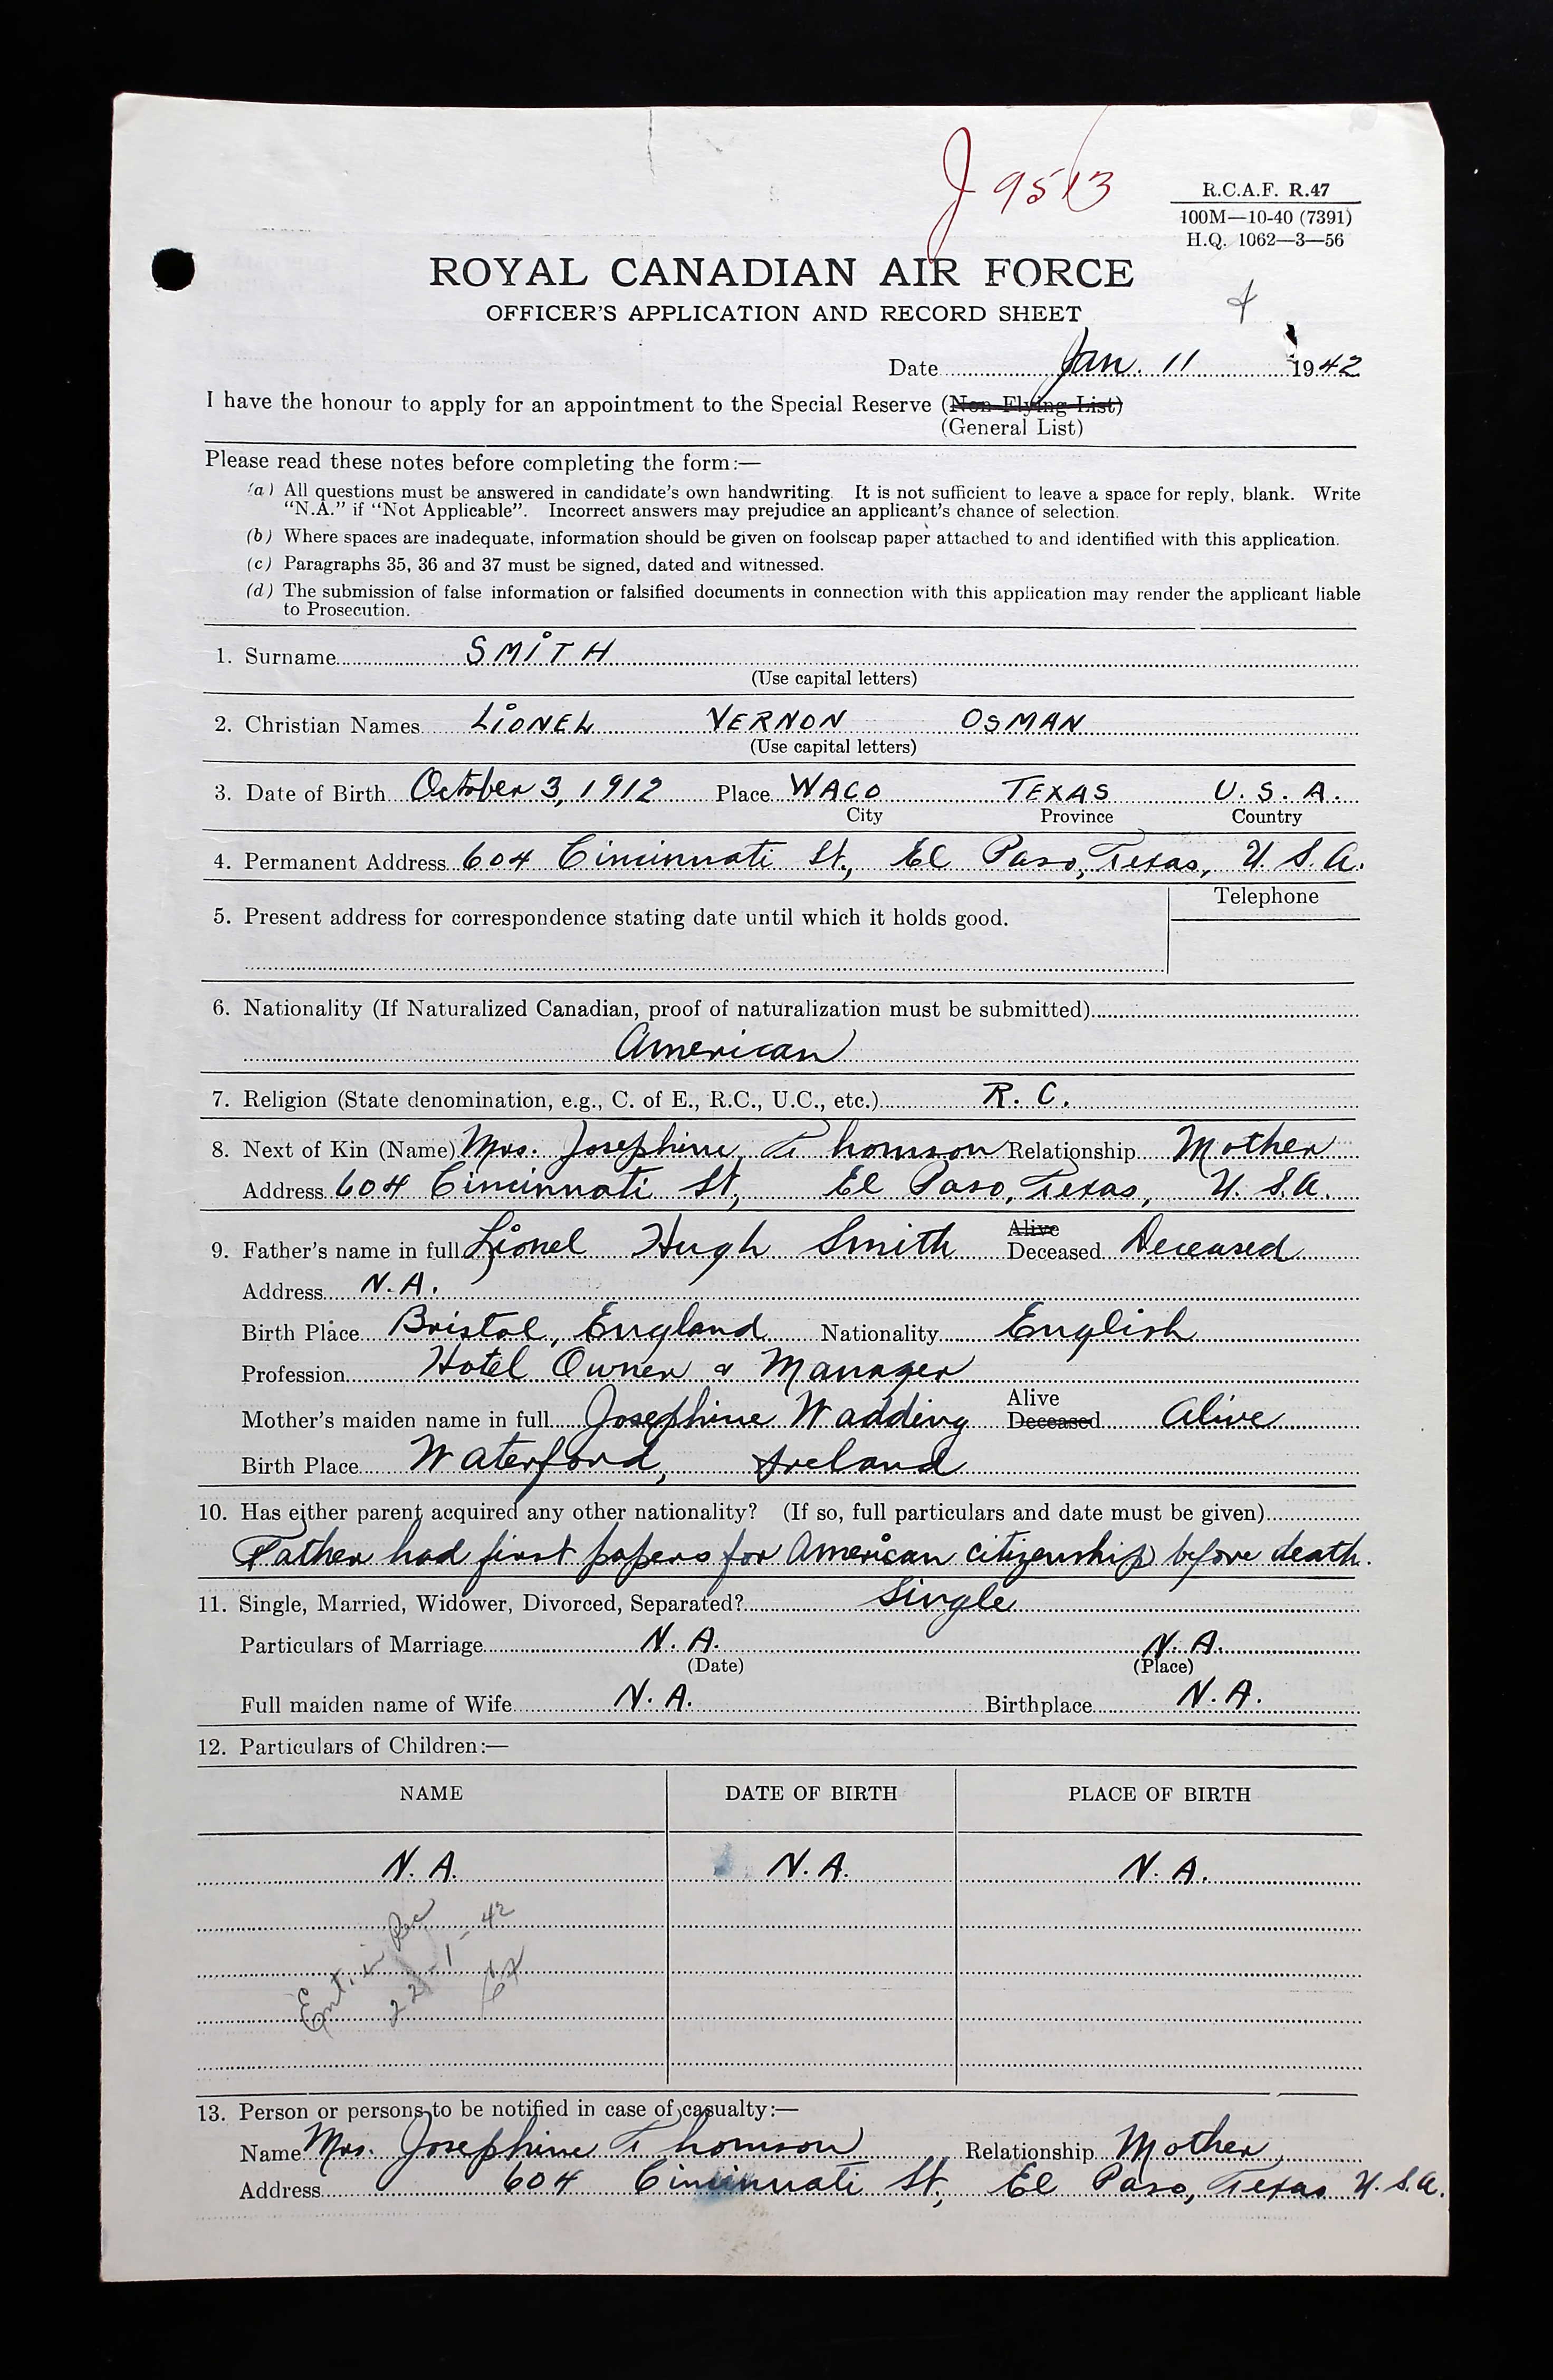 J 9513
R.C.A.F. R.47
100M—10-40 (7391)
H.Q. 1062—3—56
ROYAL CANADIAN AIR FORCE
OFFICER'S APPLICATION AND RECORD SHEET
Date Jan. 11 1942
I have the honour to apply for an appointment to the Special Reserve (Non-Flying List)
(General List)
Please read these notes before completing the form:—
(a) All questions must be answered in candidate's own handwriting. It is not sufficient to leave a space for reply, blank. Write
"N.A." if "Not Applicable". Incorrect answers may prejudice an applicant's chance of selection.
(b) Where spaces are inadequate, information should be given on foolscap paper attached to and identified with this application.
(c) Paragraphs 35, 36 and 37 must be signed, dated and witnessed.
(d) The submission of false information or falsified documents in connection with this application may render the applicant liable
to Prosecution.
1. Surname SMITH
(Use capital letters)
2. Christian Names LIONEL VERNON OSMAN
(Use capital letters)
3. Date of Birth October 3, 1912 Place WACO TEXAS U.S.A.
City Province Country
4. Permanent Address 604 Cincinnati St., El Paso, Texas, U.S.A.
Telephone
5. Present address for correspondence stating date until which it holds good.
6. Nationality (If Naturalized Canadian, proof of naturalization must be submitted)
American
7. Religion (State denomination, e.g., C. of E., R.C., U.C., etc.) R. C.
8. Next of Kin (Name) Mrs. Josephine Thomson Relationship Mother
Address 604 Cincinnati St., El Paso, Texas, U.S.A.
9. Father's name in full Lionel Hugh Smith Alive Deceased Deceased
Address N.A.
Birth Place Bristol, England Nationality English
Profession Hotel Owner & Manager
Mother's maiden name in full Josephine Wadding Alive Deceased Alive
Birth Place Waterford, Ireland
10. Has either parent acquired any other nationality? (If so, full particulars and date must be given)
Father had first papers for American citizenship before death.
11. Single, Married, Widower, Divorced, Separated? Single
Particulars of Marriage N.A. N.A.
(Date) (Place)
Full maiden name of Wife N.A. Birthplace N.A.
12. Particulars of Children:—
NAME DATE OF BIRTH PLACE OF BIRTH
N.A. N.A. N.A.
Ent. in Rec
22-1-42
13. Person or persons to be notified in case of casualty:—
Name Mrs. Josephine Thomson Relationship Mother
Address 604 Cincinnati St., El Paso, Texas U.S.A.